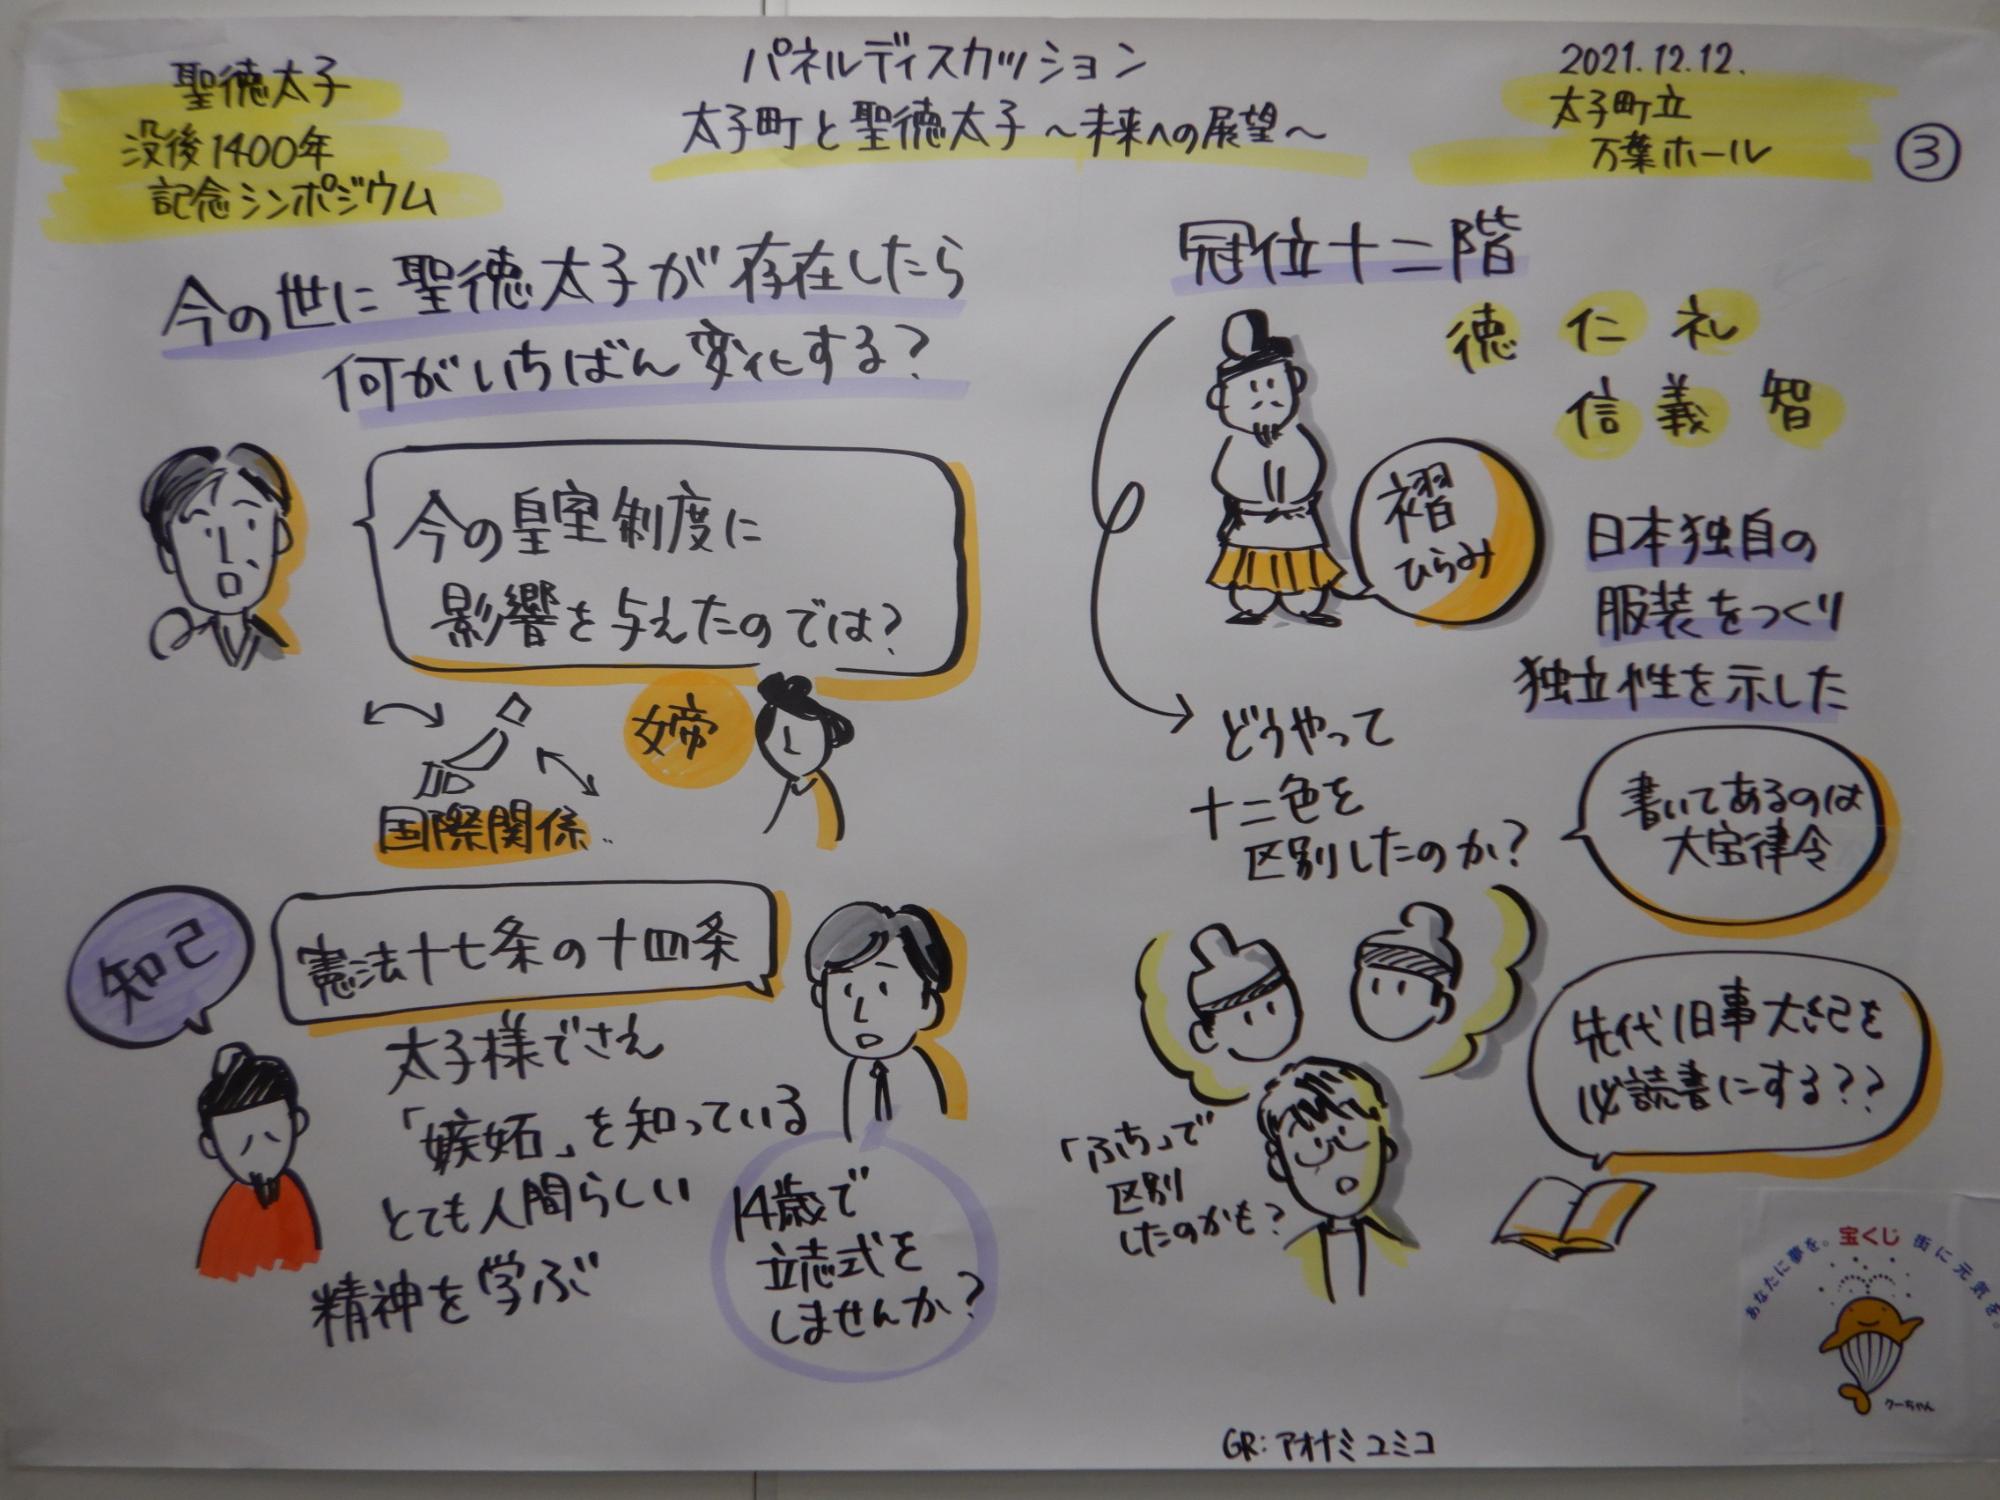 聖徳太子
没後1400年
記念シンポジウム
パネルディスカッション
太子町と聖徳太子～未来への展望～
2021.12.12.
太子町立
万葉ホール
③
今の世に聖徳太子が存在したら
何がいちばん変化する?
今の皇室制度に
影響を与えたのでは?
国際関係..
女帝
知己
憲法十七条の十四条
太子様でさえ
「嫉妬」を知っている
とても人間らしい
精神を学ぶ
14歳で
立志式を
しませんか?
冠位十二階
徳 仁 礼
信 義 智
褶
ひらみ
日本独自の
服装をつくり
独立性を示した
どうやって
十二色を
区別したのか?
書いてあるのは
大宝律令
「ふち」で
区別
したのかも?
先代旧事大紀を
必読書にする??
あなたに夢を。宝くじ 街に元気を。
クーちゃん
GR:アオナミユミコ